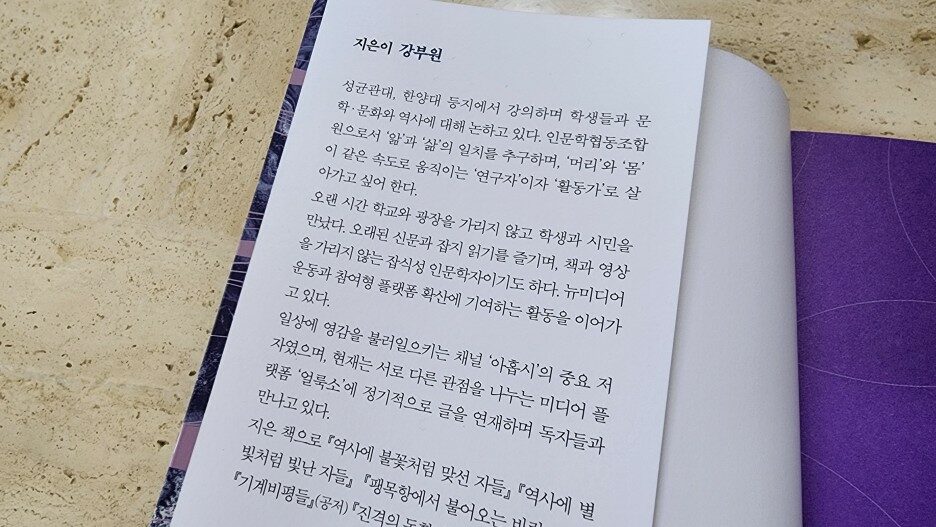 지은이 강부원
성균관대, 한양대 등지에서 강의하며 학생들과 문
학·문화와 역사에 대해 논하고 있다. 인문학협동조합
원으로서 '앎'과 '삶'의 일치를 추구하며, '머리'와 '몸'
이 같은 속도로 움직이는 '연구자'이자 '활동가'로 살
아가고 싶어 한다.
오랜 시간 학교와 광장을 가리지 않고 학생과 시민을
만났다. 오래된 신문과 잡지 읽기를 즐기며, 책과 영상
을 가리지 않는 잡식성 인문학자이기도 하다. 뉴미디어
운동과 참여형 플랫폼 확산에 기여하는 활동을 이어가
고 있다.
일상에 영감을 불러일으키는 채널 '아홉시'의 중요 저
자였으며, 현재는 서로 다른 관점을 나누는 미디어 플
랫폼 '얼룩소'에 정기적으로 글을 연재하며 독자들과
만나고 있다.
지은 책으로 『역사에 불꽃처럼 맞선 자들』 『역사에 별
빛처럼 빛난 자들』 『팽목항에서 불어오는
『기계비평들』(공저) 『진격의